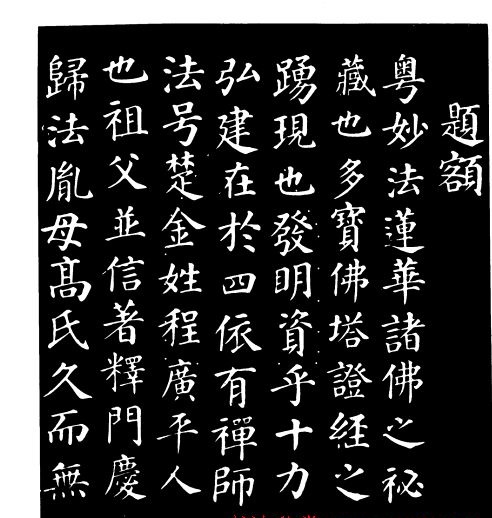 題額
粵妙法蓮華諸佛之祕
藏也多寶佛塔證經之
踴現也發明資乎十力
弘建在於四依有禪師
法号楚金姓程廣平人
也祖父並信著釋門慶
歸法胤母髙氏久而無